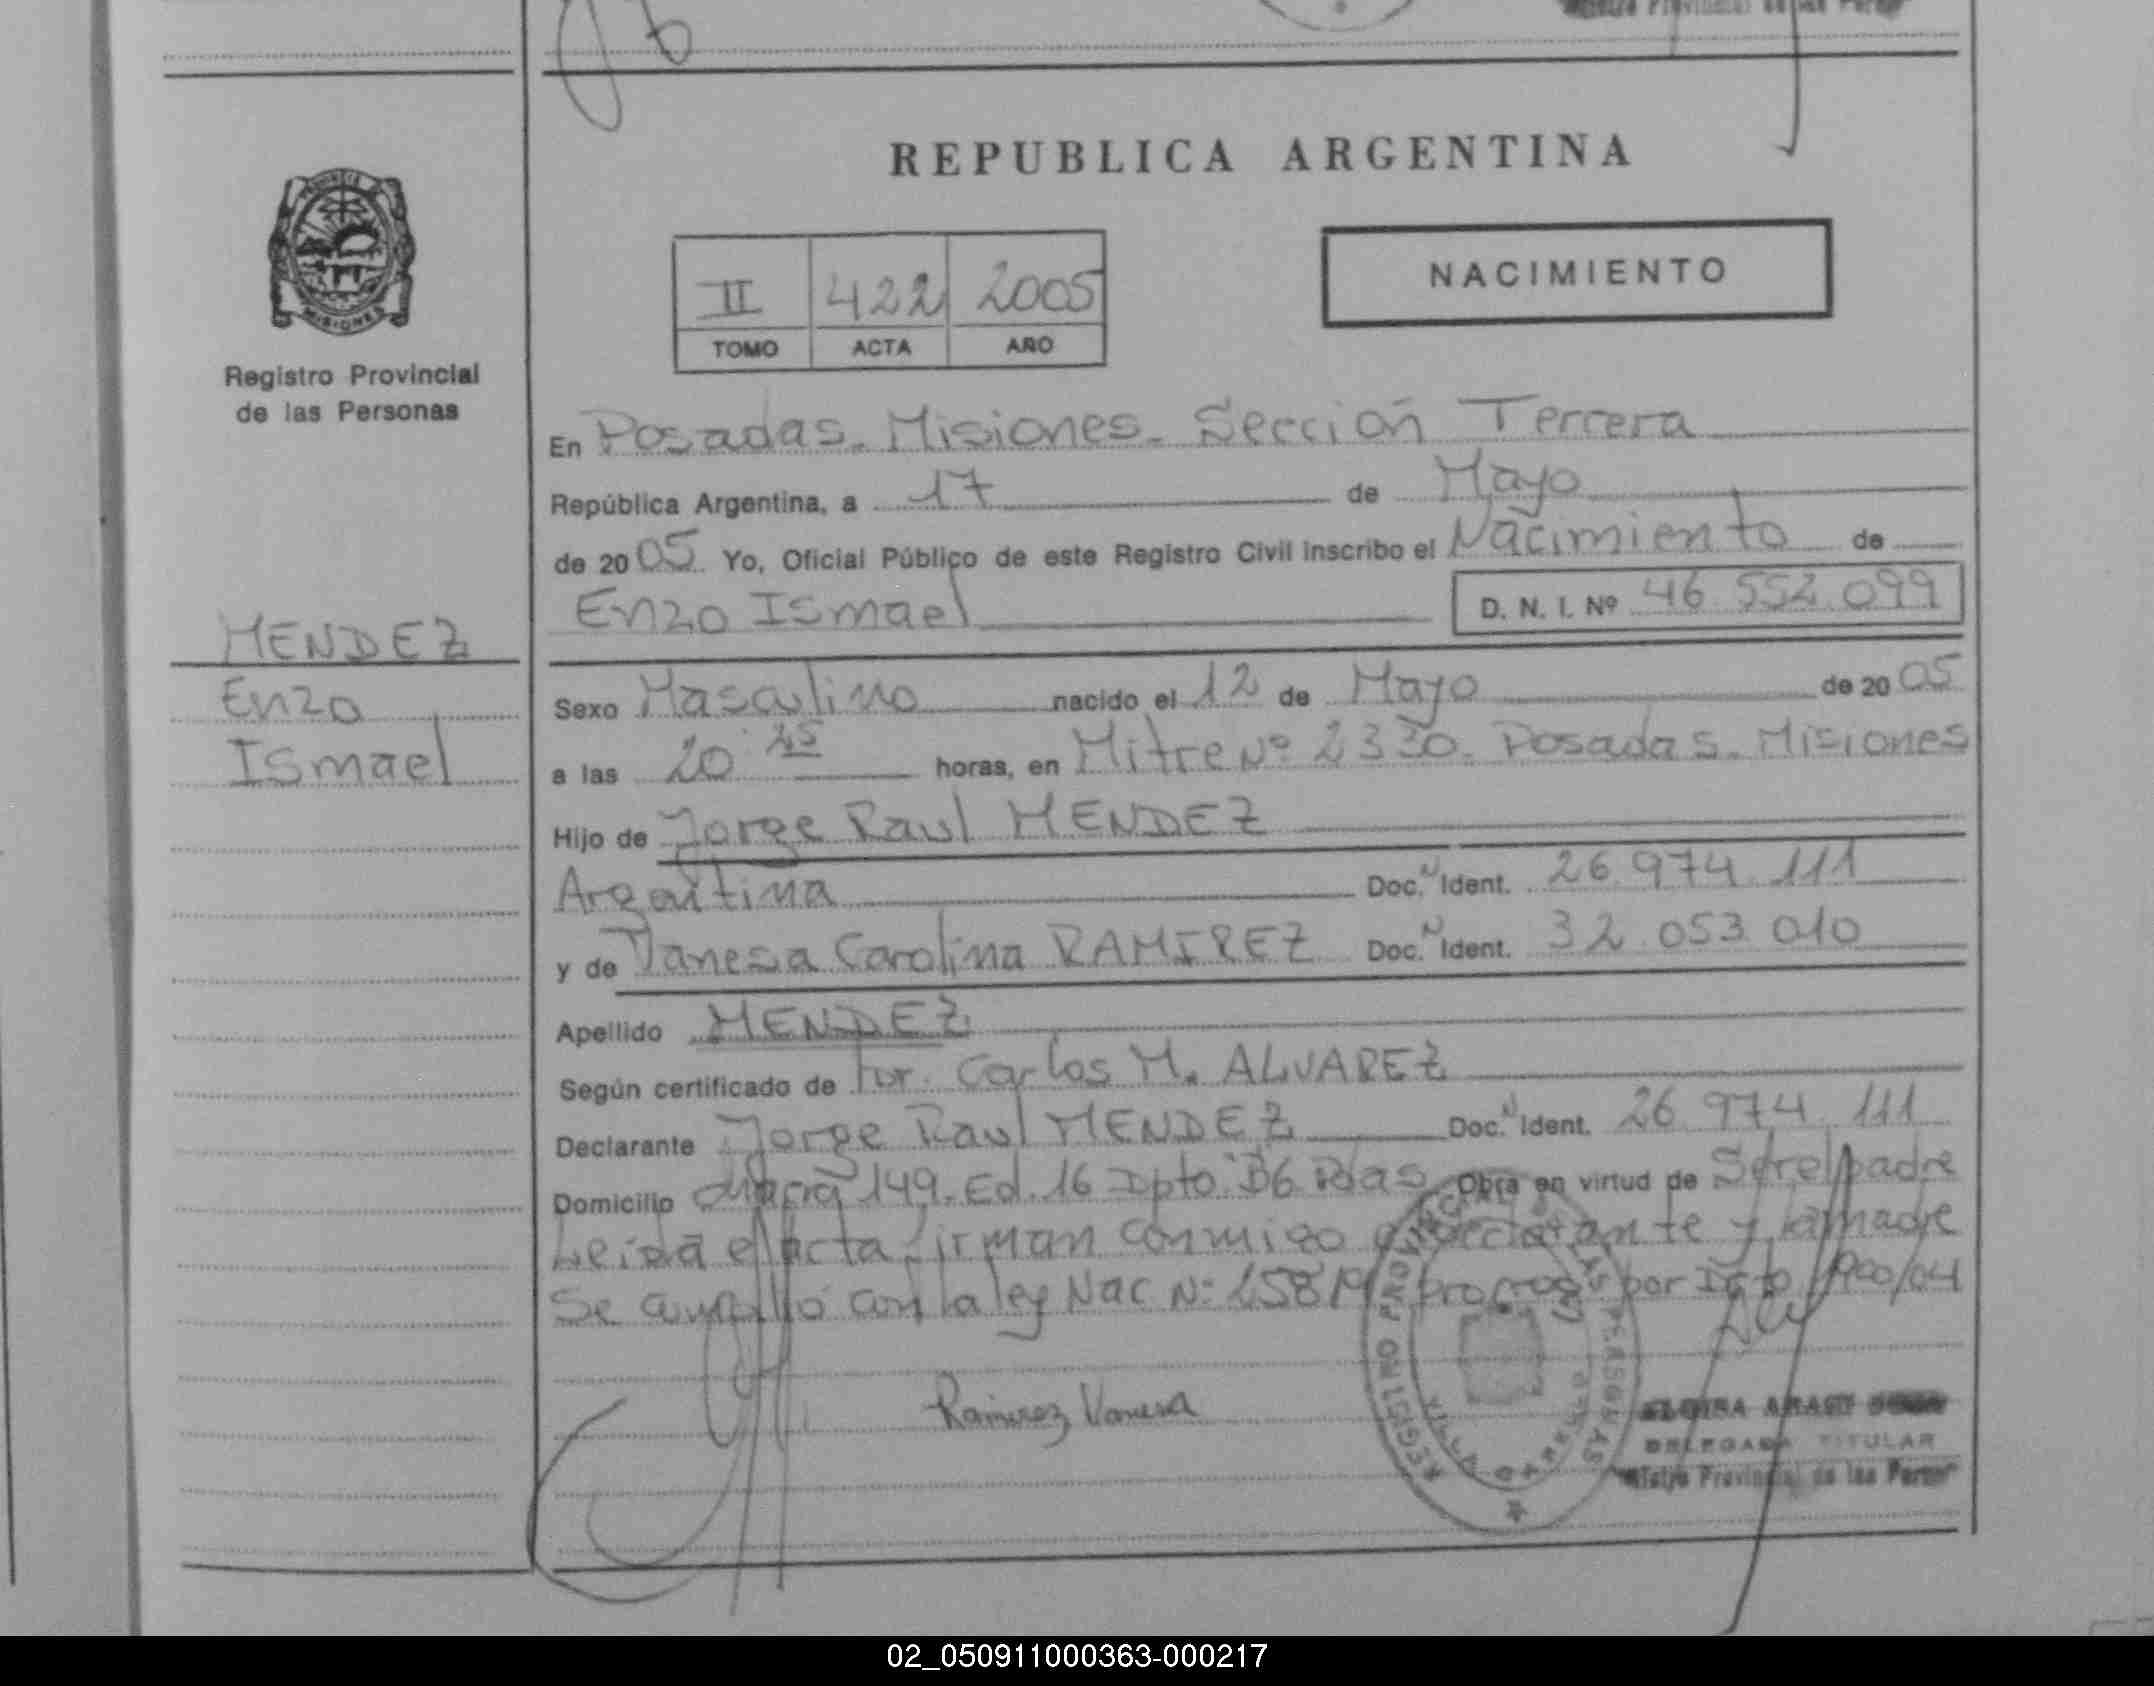 REPUBLICA ARGENTINA
MISIONES
Registro Provincial
de las Personas
II 422 2005
TOMO ACTA AÑO
NACIMIENTO
En Posadas. Misiones. Sección Tercera
República Argentina, a 17 de Mayo
de 2005. Yo, Oficial Público de este Registro Civil inscribo el Nacimiento de
Enzo Ismael D. N. I. Nº 46.552.099
MENDEZ
Enzo
Ismael
Sexo Masculino nacido el 12 de Mayo de 2005
a las 20 45 horas, en Mitre Nº 2330. Posadas. Misiones
Hijo de Jorge Raul MENDEZ
Argentina Doc. N Ident. 26.974.111
y de Vanesa Carolina RAMIREZ Doc. N Ident. 32.053.010
Apellido MENDEZ
Según certificado de Carlos M. ALVAREZ
Declarante Jorge Raul MENDEZ Doc. N Ident. 26.974.111
Domicilio chacra 149. Ed. 16 Dpto. B6 Pdas Obra en virtud de Ser el padre
Leida el acta firman conmigo el declarante y la madre
Se cumplió con la ley Nac Nº 25819 prorroga por Dcto 1900/04
Ramirez Vanesa
REGISTRO PROVINCIAL DE LAS PERSONAS
VILLA
DELEGADA TITULAR
Registro Provincial de las Personas
02_050911000363-000217